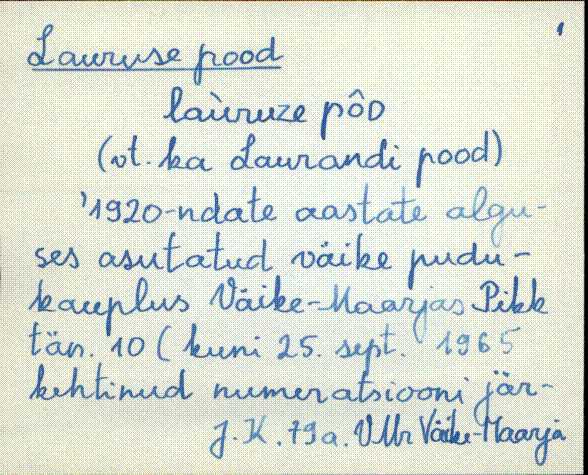 1
Lauruse pood
laùruze pôᴅ
(vt. ka Laurandi pood)
'1920-ndate aastate algu-
ses asutatud väike pudu-
kauplus Väike-Maarjas Pikk
tän. 10 (kuni 25. sept. 1965
kehtinud numeratsiooni jär-
J.K. 79a. VMr Väike-Maarja